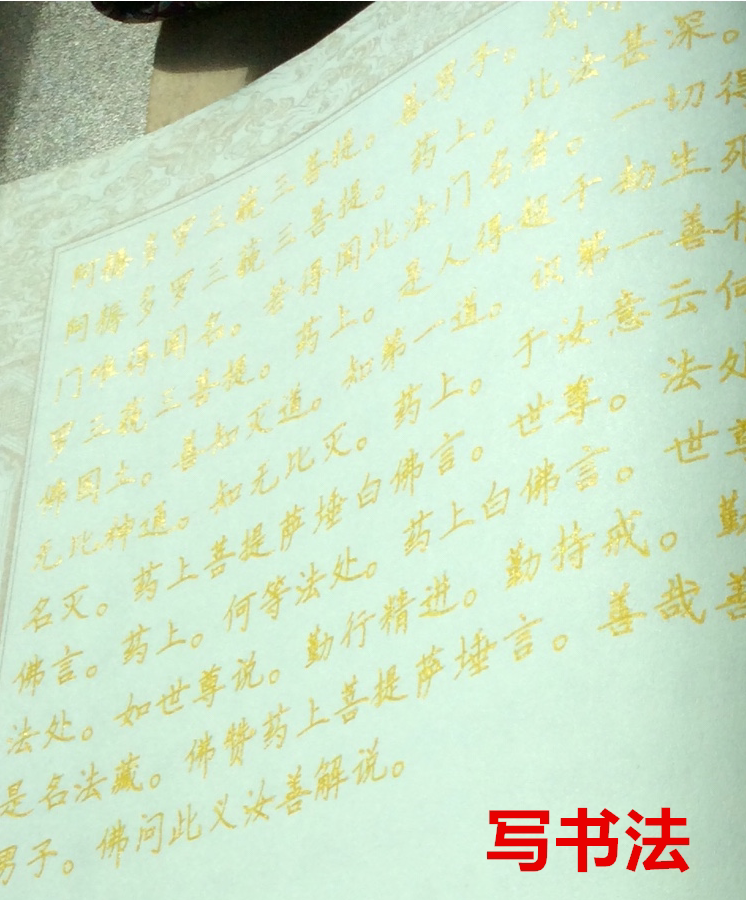 阿耨多罗三藐三菩提。善男子。我
阿耨多罗三藐三菩提。药上。此法甚深。
门唯得闻名。若得闻此法门名者。一切得
罗三藐三菩提。药上。是人得超千劫生死
佛国土。善知灭道。知第一道。识第一善根
无比神通。知无比灭。药上。于汝意云何
名灭。药上菩提萨埵白佛言。世尊。法处
佛言。药上。何等法处。药上白佛言。世尊
法处。如世尊说。勤行精进。勤持戒。勤
是名法藏。佛赞药上菩提萨埵言。善哉善
男子。佛问此义汝善解说。
写书法